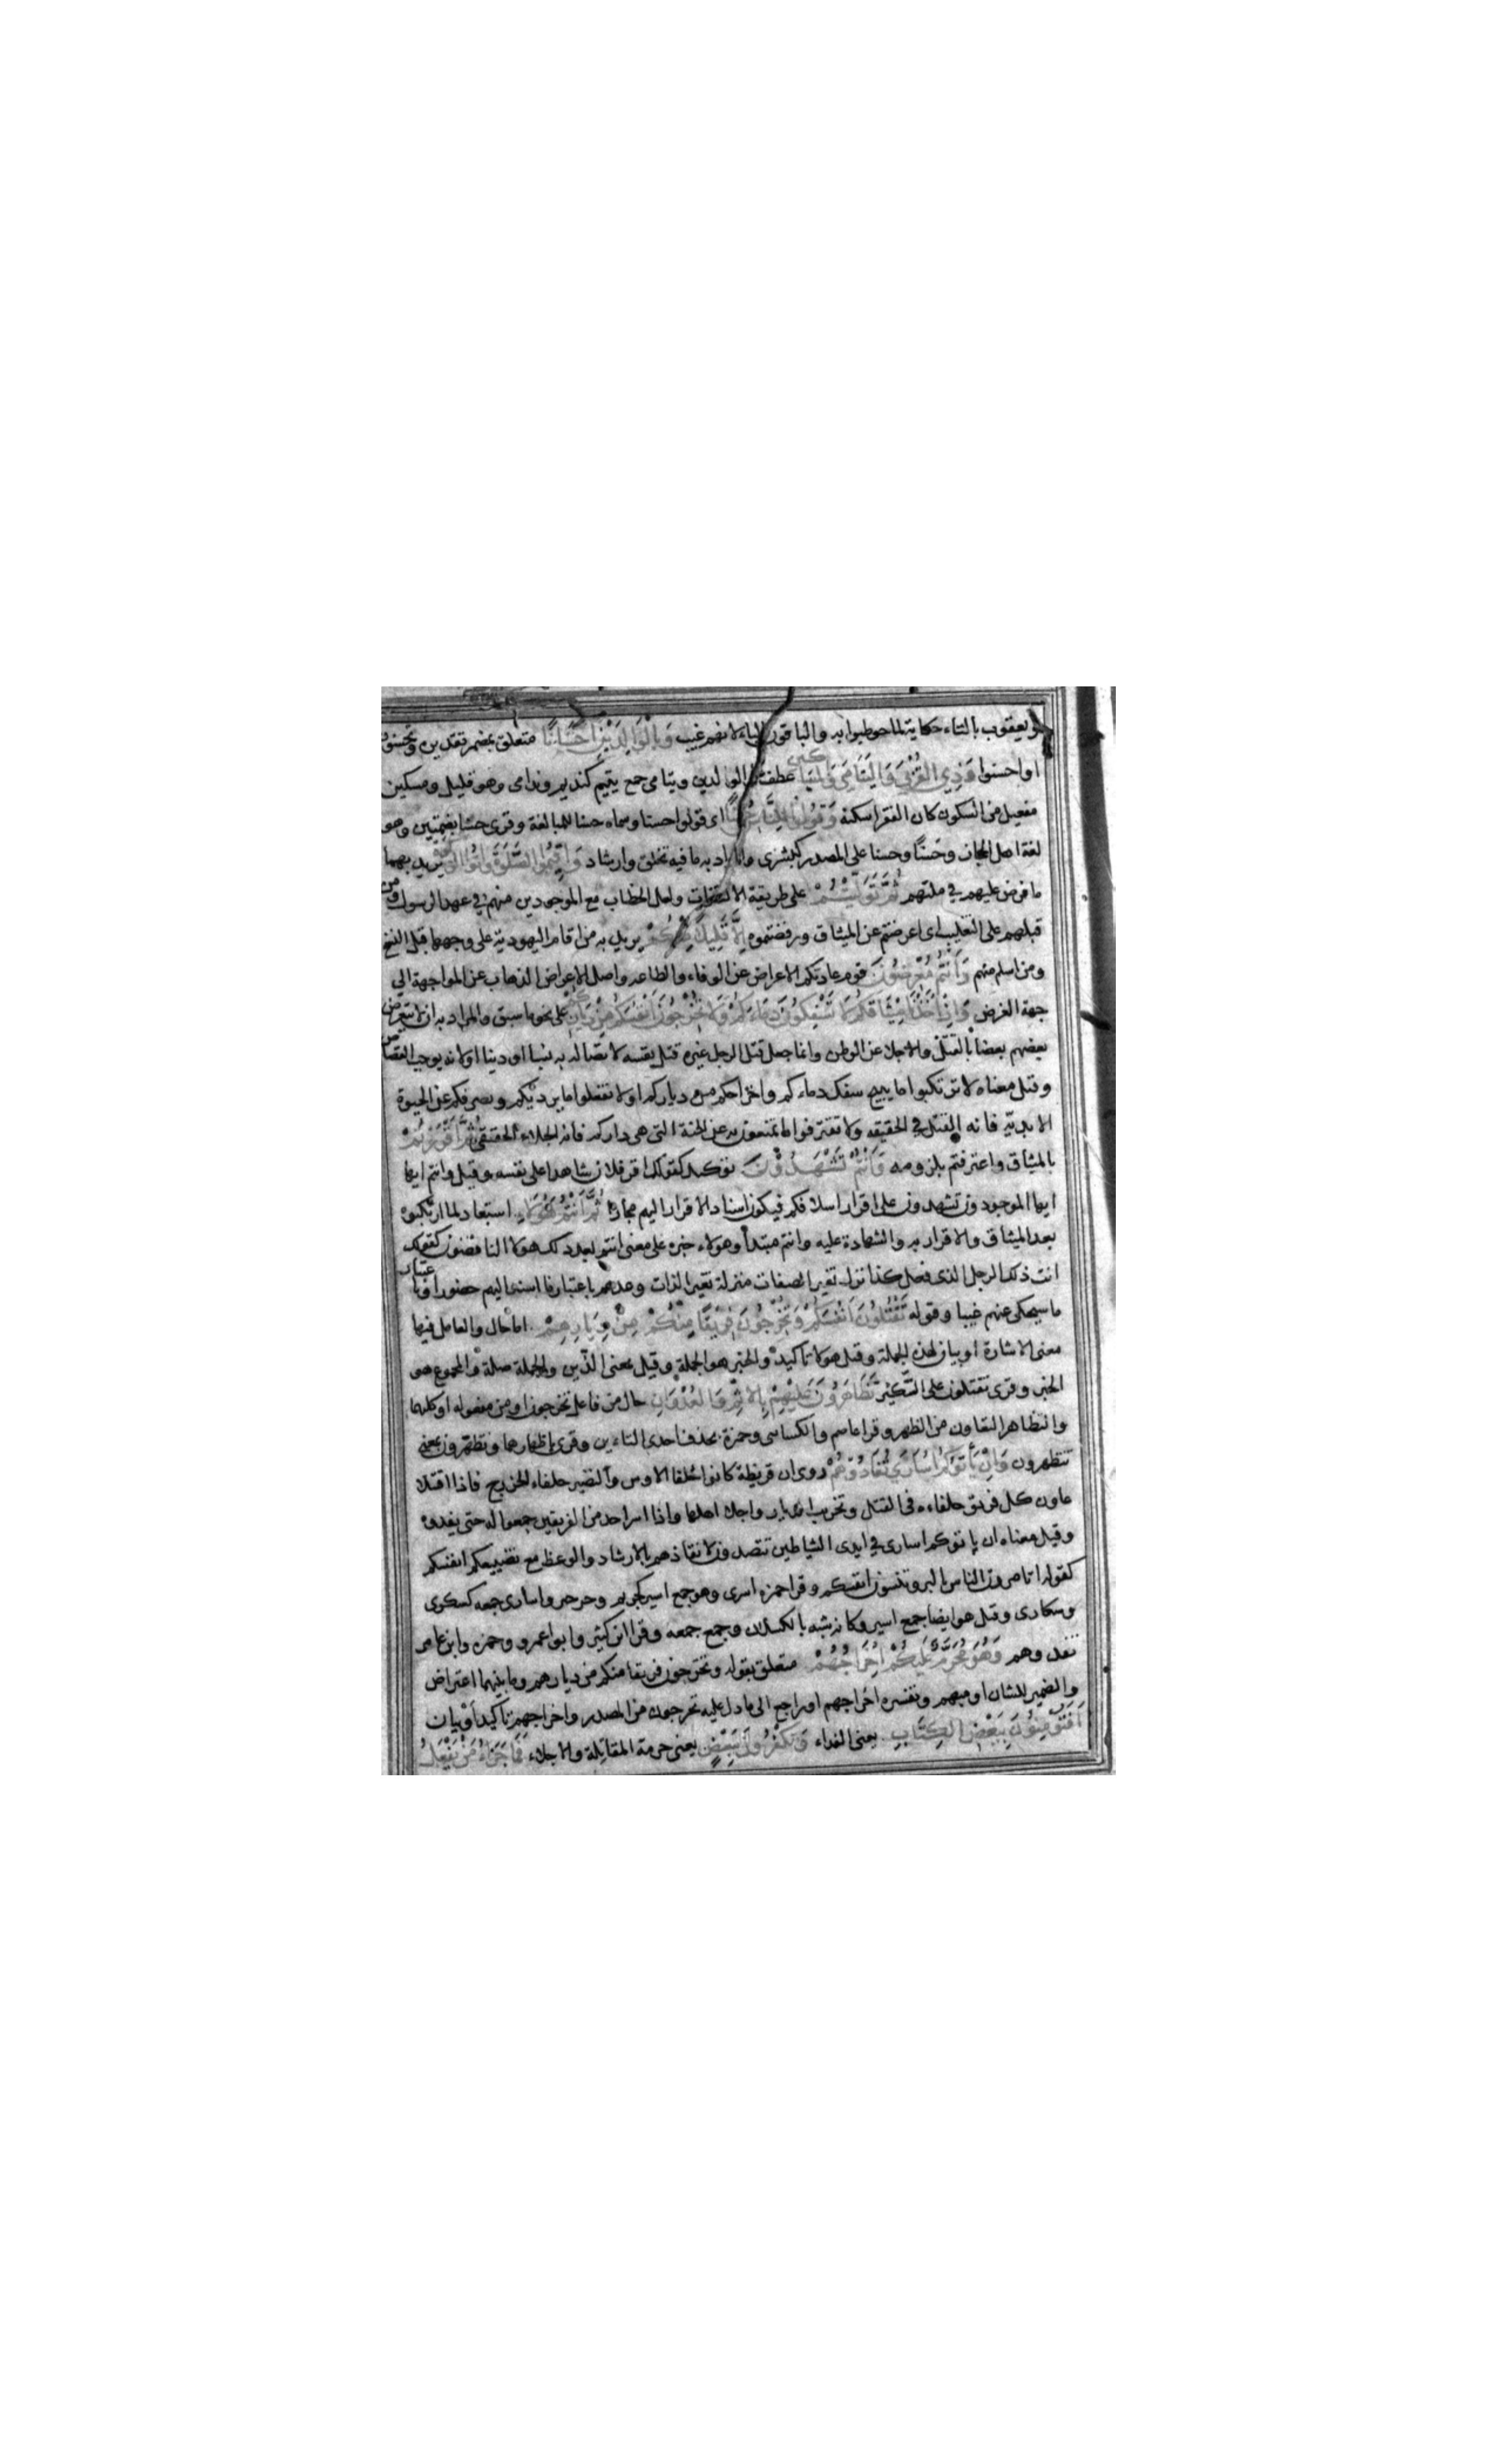 ويعقوب بالتاء حكاية لما خوطبوا به والباقون بالياء لانهم غيب وَبِالْوَالِدَيْنِ اِحْسَانًا متعلق بمضمر تقديره وتحسنون
او احسنوا وَذِي الْقُرْبَى وَالْيَتَامَى وَالْمَسَاكِينِ عطف على الوالدين ويتامى جمع يتيم كنديم وندامى وهو قليل ومسكين
مفعيل من السكون كان الفقر اسكنه وَقُولُوا لِلنَّاسِ حُسْنًا اى قولوا حسنا وسماه حسنا للمبالغة وقرى حسنا بضمتين وهو
لغة اهل الحجاز وحَسَنًا وحسنا على المصدر كبشرى والمراد به ما فيه تخلق وارشاد وَاَقِيمُوا الصَّلٰوةَ وَاٰتُوا الزَّكٰوةَ يريد بهما
ما فرض عليهم في ملتهم ثُمَّ تَوَلَّيْتُمْ على طريقة الالتفات ولعل الخطاب مع الموجودين منهم في عهد الرسول ومن
قبلهم على التغليب اى اعرضتم عن الميثاق ورفضتموه اِلَّا قَلِيلًا مِنْكُمْ يريد به من اقام اليهودية على وجهها قبل النسخ
ومن اسلم منهم وَاَنْتُمْ مُعْرِضُونَ قوم عادتكم الاعراض عن الوفاء والطاعه واصل الاعراض الذهاب عن المواجهة الى
جهة العرض وَاِذْ اَخَذْنَا مِيثَاقَكُمْ لَا تَسْفِكُونَ دِمَاءَكُمْ وَلَا تُخْرِجُونَ اَنْفُسَكُمْ مِنْ دِيَارِكُمْ على نحو ما سبق والمراد به ان لا يتعرض
بعضهم بعضا بالقتل والاجلاء عن الوطن وانما جعل قتل الرجل غيره قتل نفسه لاتصاله به نسبا او دينا او لانه يوجب القصاص
وقيل معناه لا ترتكبوا ما يبيح سفك دماءكم واخراجكم من دياركم او لا تفعلوا ما يرديكم ويصرفكم عن الحيوة
الابديّة فانه القتل في الحقيقه ولا تقترفوا ما تمنعون به عن الجنة التى هى داركم فانه الجلاء الحقيقى ثُمَّ اَقْرَرْتُمْ
بالميثاق واعترفتم بلزومه وَاَنْتُمْ تَشْهَدُونَ توكيد كقولك اقر فلان شاهدا على نفسه وقيل وانتم ايها
ايها الموجودون تشهدون على اقرار اسلافكم فيكون اسناد الاقرار اليهم مجازا ثُمَّ اَنْتُمْ هٰؤُلَاءِ استبعاد لما ارتكبوه
بعد الميثاق والاقرار به والشهادة عليه وانتم مبتدأ وهولاء خبره على معنى انتم بعد ذلك هولاء الناقضون كقولك
انت ذلك الرجل الذى فعل كذا نزل تغير الصفات منزلة تغير الذات وعدهم باعتبار ما اسند اليهم حضورا وباعتبار
ما سيحكى عنهم غيبا وقوله تَقْتُلُونَ اَنْفُسَكُمْ وَتُخْرِجُونَ فَرِيقًا مِنْكُمْ مِنْ دِيَارِهِمْ اما حال والعامل فيها
معنى الاشارة او بيان لهذه الجملة وقيل هولا تاكيد والخبر هو الجملة وقيل بمعنى الذين والجملة صلة والمجموع هو
الخبر وقرى تقتلون على التكثير تَظَاهَرُونَ عَلَيْهِمْ بِالْاِثْمِ وَالْعُدْوَانِ حال من فاعل تخرجون او من مفعوله او كليهما
والتظاهر التعاون من الظهر وقرا عاصم والكسائى وحمزة بحذف احدى التاءين وقرى باظهارهما وتظهرون بمعنى
تتظهرون وَاِنْ يَأْتُوكُمْ اُسَارٰى تُفَادُوهُمْ روى ان قريظة كانوا حلفا الاوس والنضير حلفاء الخزرج فاذا اقتتلا
عاون كل فريق حلفاءه فى القتل وتخريب الديار واجلاء اهلها واذا اسر احد من الفريقين جمعوا له حتى يفدوه
وقيل معناه ان ياتوكم اسارى في ايدى الشياطين تتصدون لانقاذهم بالارشاد والوعظ مع تضييعكم انفسكم
كقوله اتامرون الناس بالبر وتنسون انفسكم وقرا حمزه اسرى وهو جمع اسير كجريح وجرحى واسارى جمعه كسكرى
وسكارى وقيل هو ايضا جمع اسير وكانه شبه بالكسلان وجمع جمعه وقرا ابن كثير وابو اعمرو وحمزه وابن عامر
تفدوهم وَهُوَ مُحَرَّمٌ عَلَيْكُمْ اِخْرَاجُهُمْ متعلق بقوله وتخرجون فريقا منكم من ديارهم وما بينهما اعتراض
والضمير للشان او مبهم وتفسره اخراجهم او راجع الى ما دل عليه تخرجون من المصدر واخراجهم تاكيد او بيان
اَفَتُؤْمِنُونَ بِبَعْضِ الْكِتَابِ يعنى الفداء وَتَكْفُرُونَ بِبَعْضٍ يعنى حرمة المقاتلة والاجلاء فَمَا جَزَاءُ مَنْ يَفْعَلُ